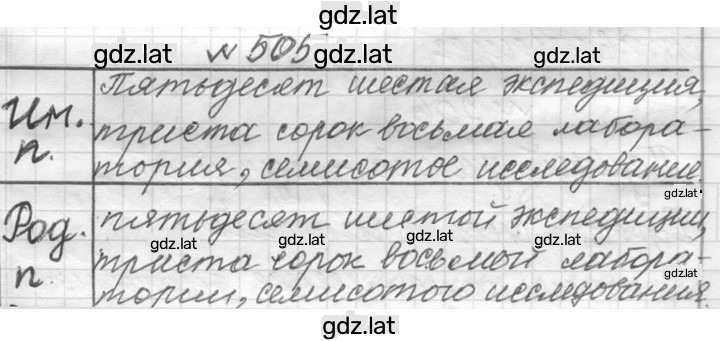 gdz.lat
№ 505
gdz.lat gdz.lat gdz.lat
Им. п.
Пятьдесят шестая экспедиция,
триста сорок восьмая лабора-
тория, семисотое исследование.
gdz.lat
Род. п.
пятьдесят шестой экспедиции,
gdz.lat gdz.lat gdz.lat
триста сорок восьмой лабора-
gdz.lat
тории, семисотого исследования.
gdz.lat